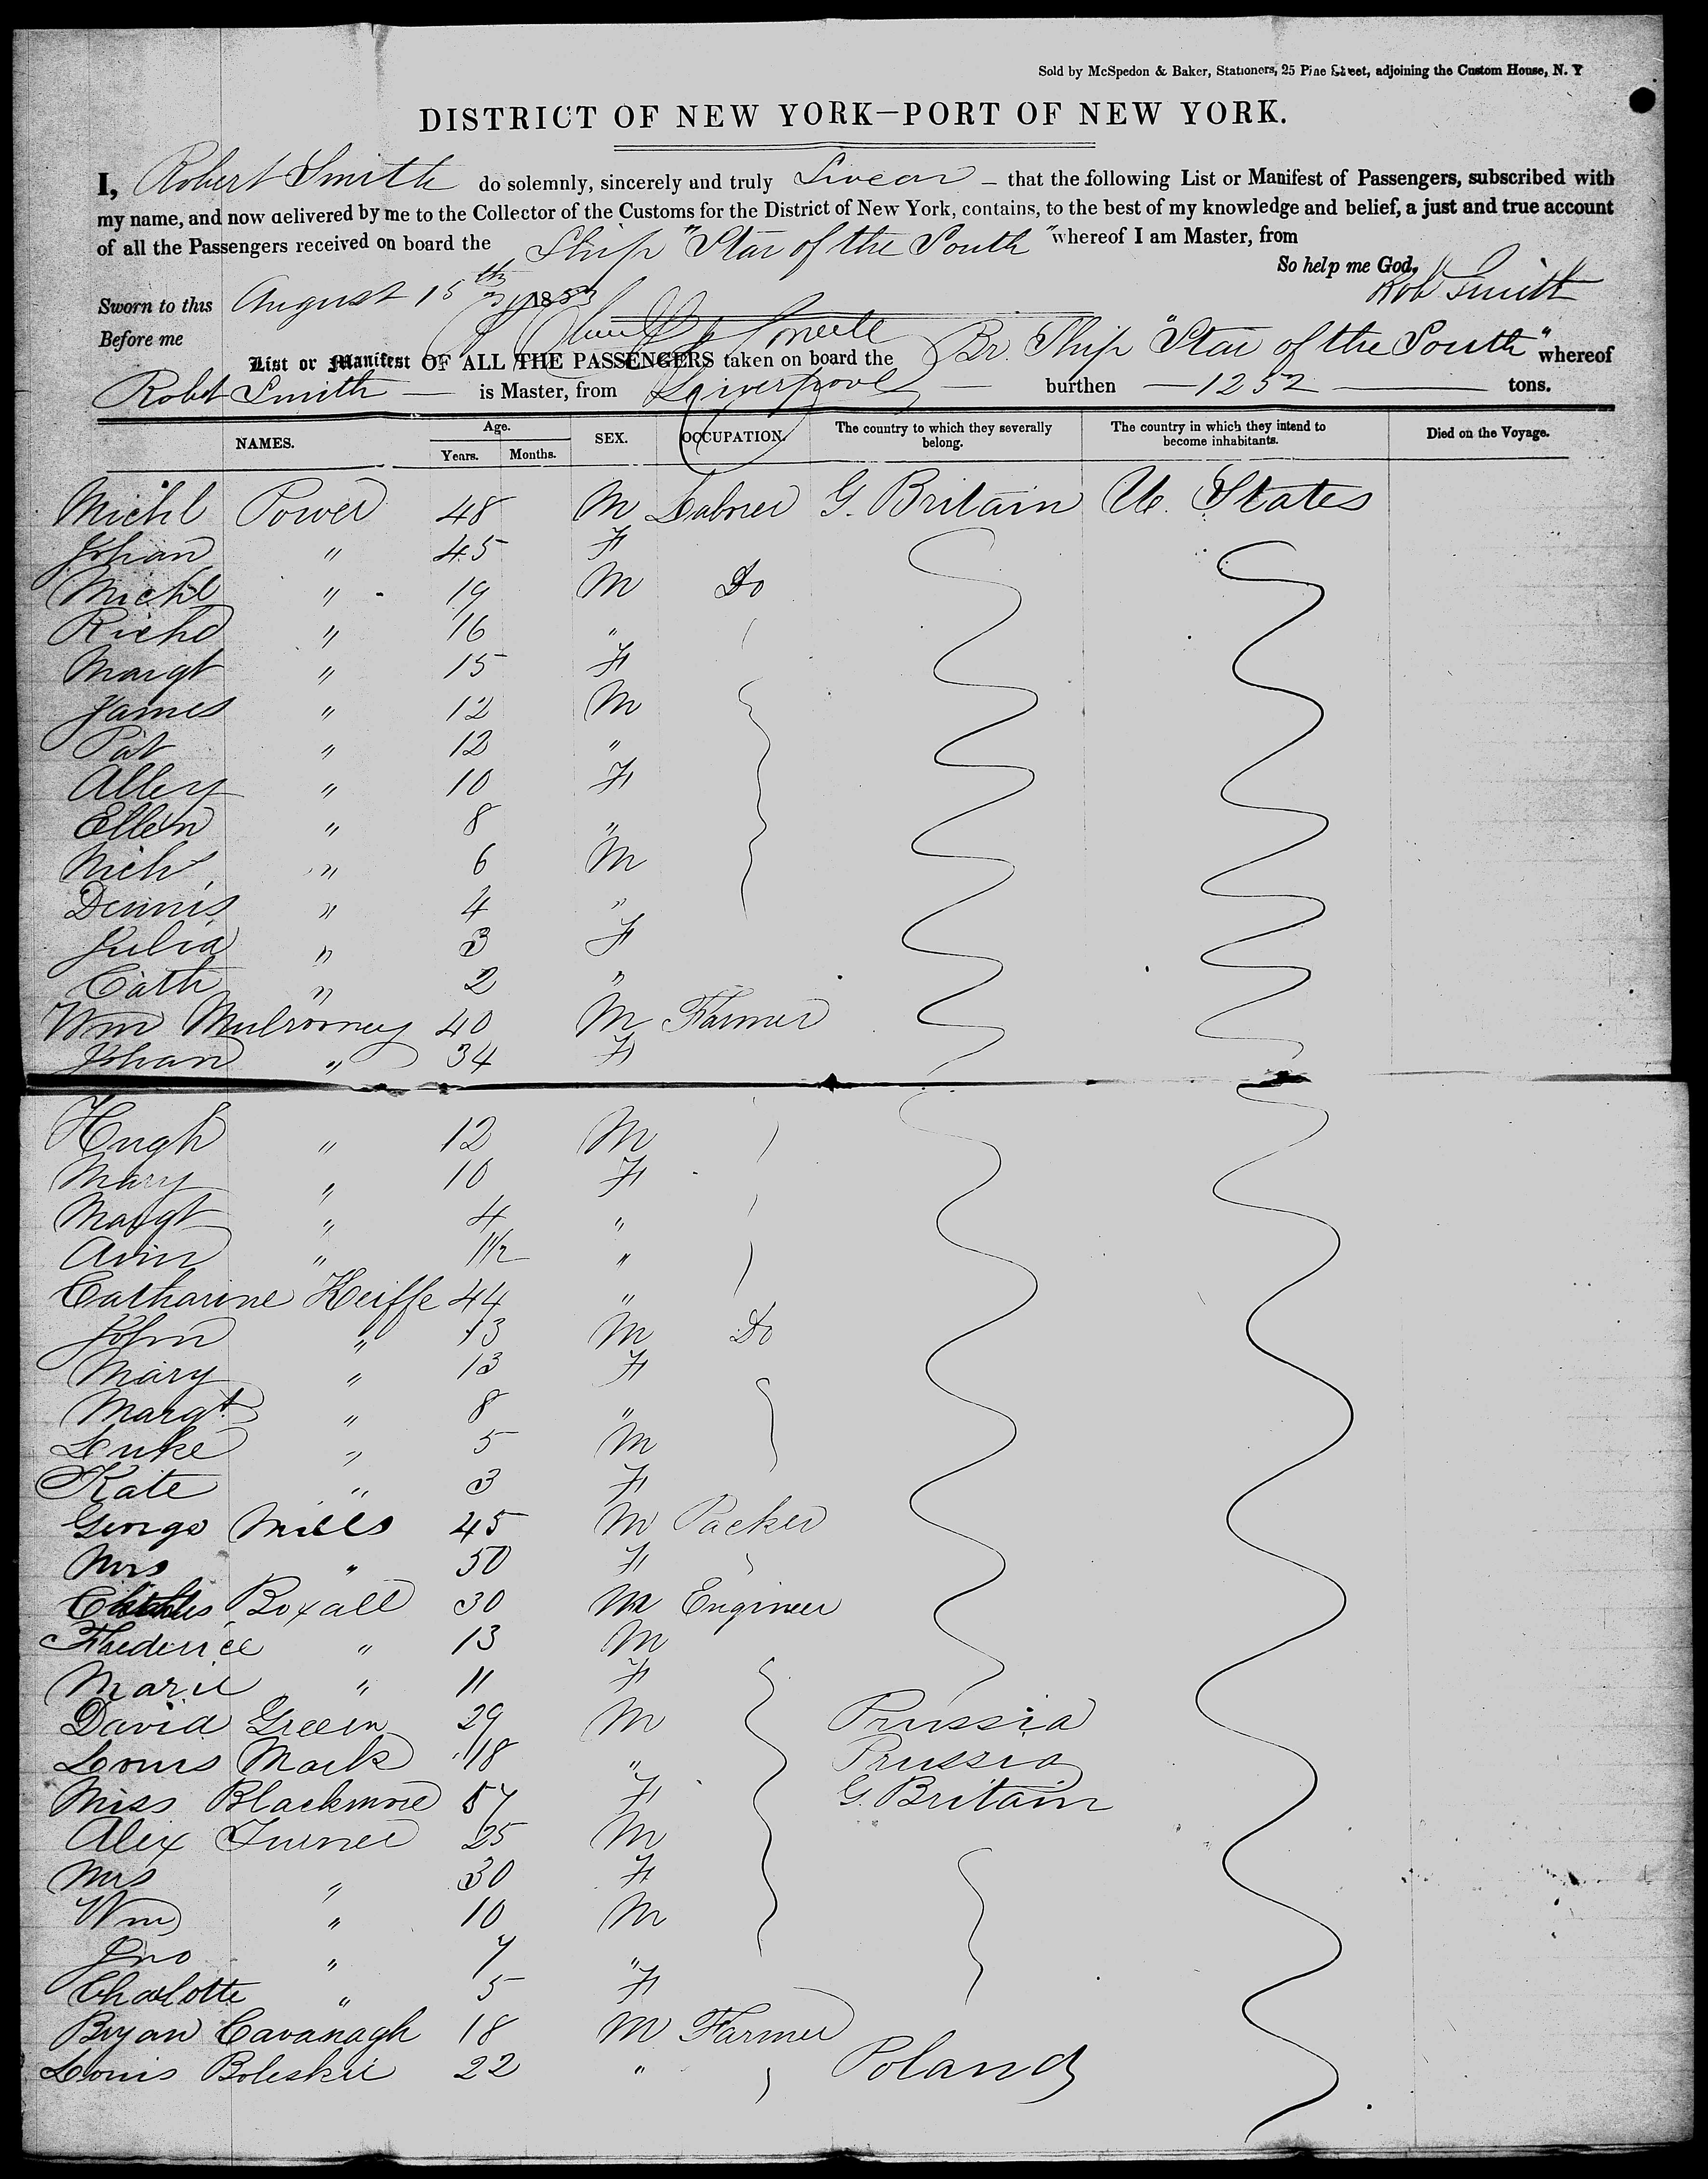 Sold by McSpedon & Baker, Stationers, 25 Pine Street, adjoining the Custom House, N. Y
DISTRICT OF NEW YORK—PORT OF NEW YORK.
I, Robert Smith do solemnly, sincerely and truly Swear – that the following List or Manifest of Passengers, subscribed with
my name, and now delivered by me to the Collector of the Customs for the District of New York, contains, to the best of my knowledge and belief, a just and true account
of all the Passengers received on board the Ship "Star of the South" whereof I am Master, from
So help me God,
Sworn to this August 15th 1853 Rob Smith
Before me
List or Manifest OF ALL THE PASSENGERS taken on board the Br. Ship "Star of the South" whereof
Robt Smith — is Master, from Liverpool — burthen — 1252 — tons.
NAMES. Age. Years. Months. SEX. OCCUPATION. The country to which they severally belong. The country in which they intend to become inhabitants. Died on the Voyage.
Michl Power 48 M Labrer G. Britain U. States
Johan " 45 F
Michl " 19 M Do
Richd " 16 "
Margt " 15 F
James " 12 M
Pat " 12 "
Alley " 10 F
Ellen " 8 "
Nich " 6 M
Dennis " 4 "
Julia " 3 F
Cath " 2 "
Wm Mulrooney 40 M Farmer
Johan " 34 F
Hugh " 12 M
Mary " 10 F
Margt " 4 "
Ann " 1 1/2 "
Catharine Keiffe 44 "
John " 13 M Do
Mary " 13 F
Margt " 8 "
Luke " 5 M
Kate " 3 F
George Mills 45 M Packer
Mrs " 50 F
Boxall 30 M Engineer
Frederick " 13 M
Marie " 11 F
David Green 29 M Prussia
Louis Mark 18 " Prussia
Miss Blackmore 57 F G. Britain
Alex Turner 25 M
Mrs " 30 F
Wm " 10 M
Jno " 7 "
Charlotte " 5 F
Bryan Cavanagh 18 M Farmer
Louis Boleskie 22 " Poland